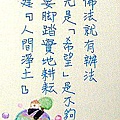 佛法就有辦法
光是「希望」是不夠
要腳踏實地耕耘
建「人間淨土」